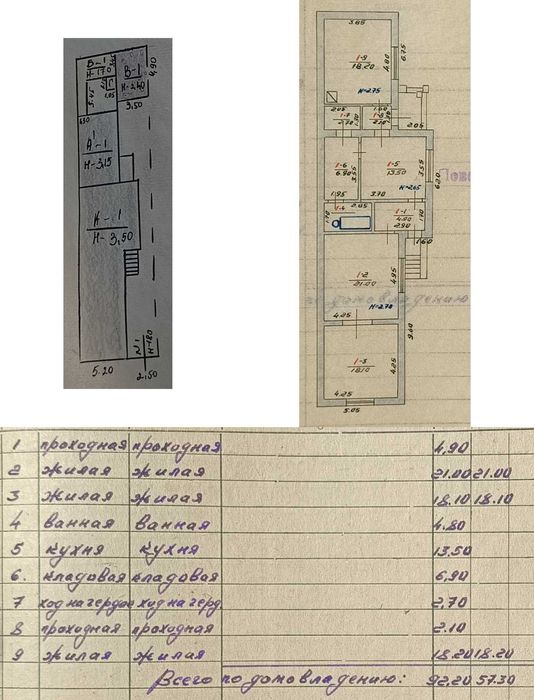 В-1
Н-1.70
В-1
Н-2.40
4,90
3.45
Г
1.05
3,50
А¹-1
Н-3,15
А-1
Н-3,50
N1
Н-1.80
5.20
2.50
3.85
1-9
18.20
4.80
6.75
Н-2.75
2.05
1-7
2.70
1.30
1.60
1-8
2.10
1.30
2.05
1-6
6.90
3.55
1-5
13.50
3.55
6.20
1.95
3.70
Н-2.65
2.65
1-4
1.70
1-1
4.90
2.90
1.70
1.60
1-2
21.00
4.95
по домовладению
Н-2.70
4.25
9.60
1-3
18.10
4.25
4.25
5.05
1 проходная проходная 4,90
2 жилая жилая 21.00 21.00
3 жилая жилая 18.10 18.10
4 ванная ванная 4.80
5 кухня кухня 13,50
6. кладовая кладовая 6,90
7 ход на чердак ход на черд. 2,70
8 проходная проходная 2.10
9 жилая жилая 18.20 18.20
Всего по домовладению: 92.20 57.30